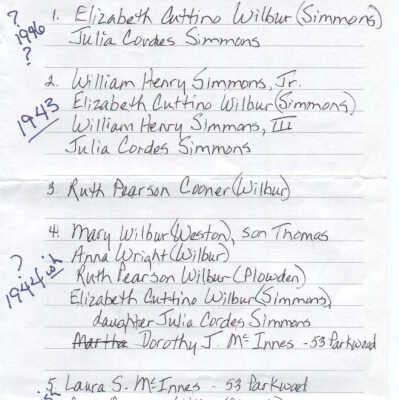 ? 1. Elizabeth Cuttino Wilbur (Simmons)
1946 Julia Cordes Simmons
?
2. William Henry Simmons, Jr.
1943 Elizabeth Cuttino Wilbur (Simmons)
William Henry Simmons, III
Julia Cordes Simmons
3. Ruth Pearson Cooner (Wilbur)
4. Mary Wilbur (Weston), son Thomas
? Anna Wright (Wilbur)
1944 ish Ruth Pearson Wilbur (Plowden)
Elizabeth Cuttino Wilbur (Simmons)
daughter Julia Cordes Simmons
Martha Dorothy J. McInnes - 53 Parkwood
5. Laura S. McInnes - 53 Parkwood